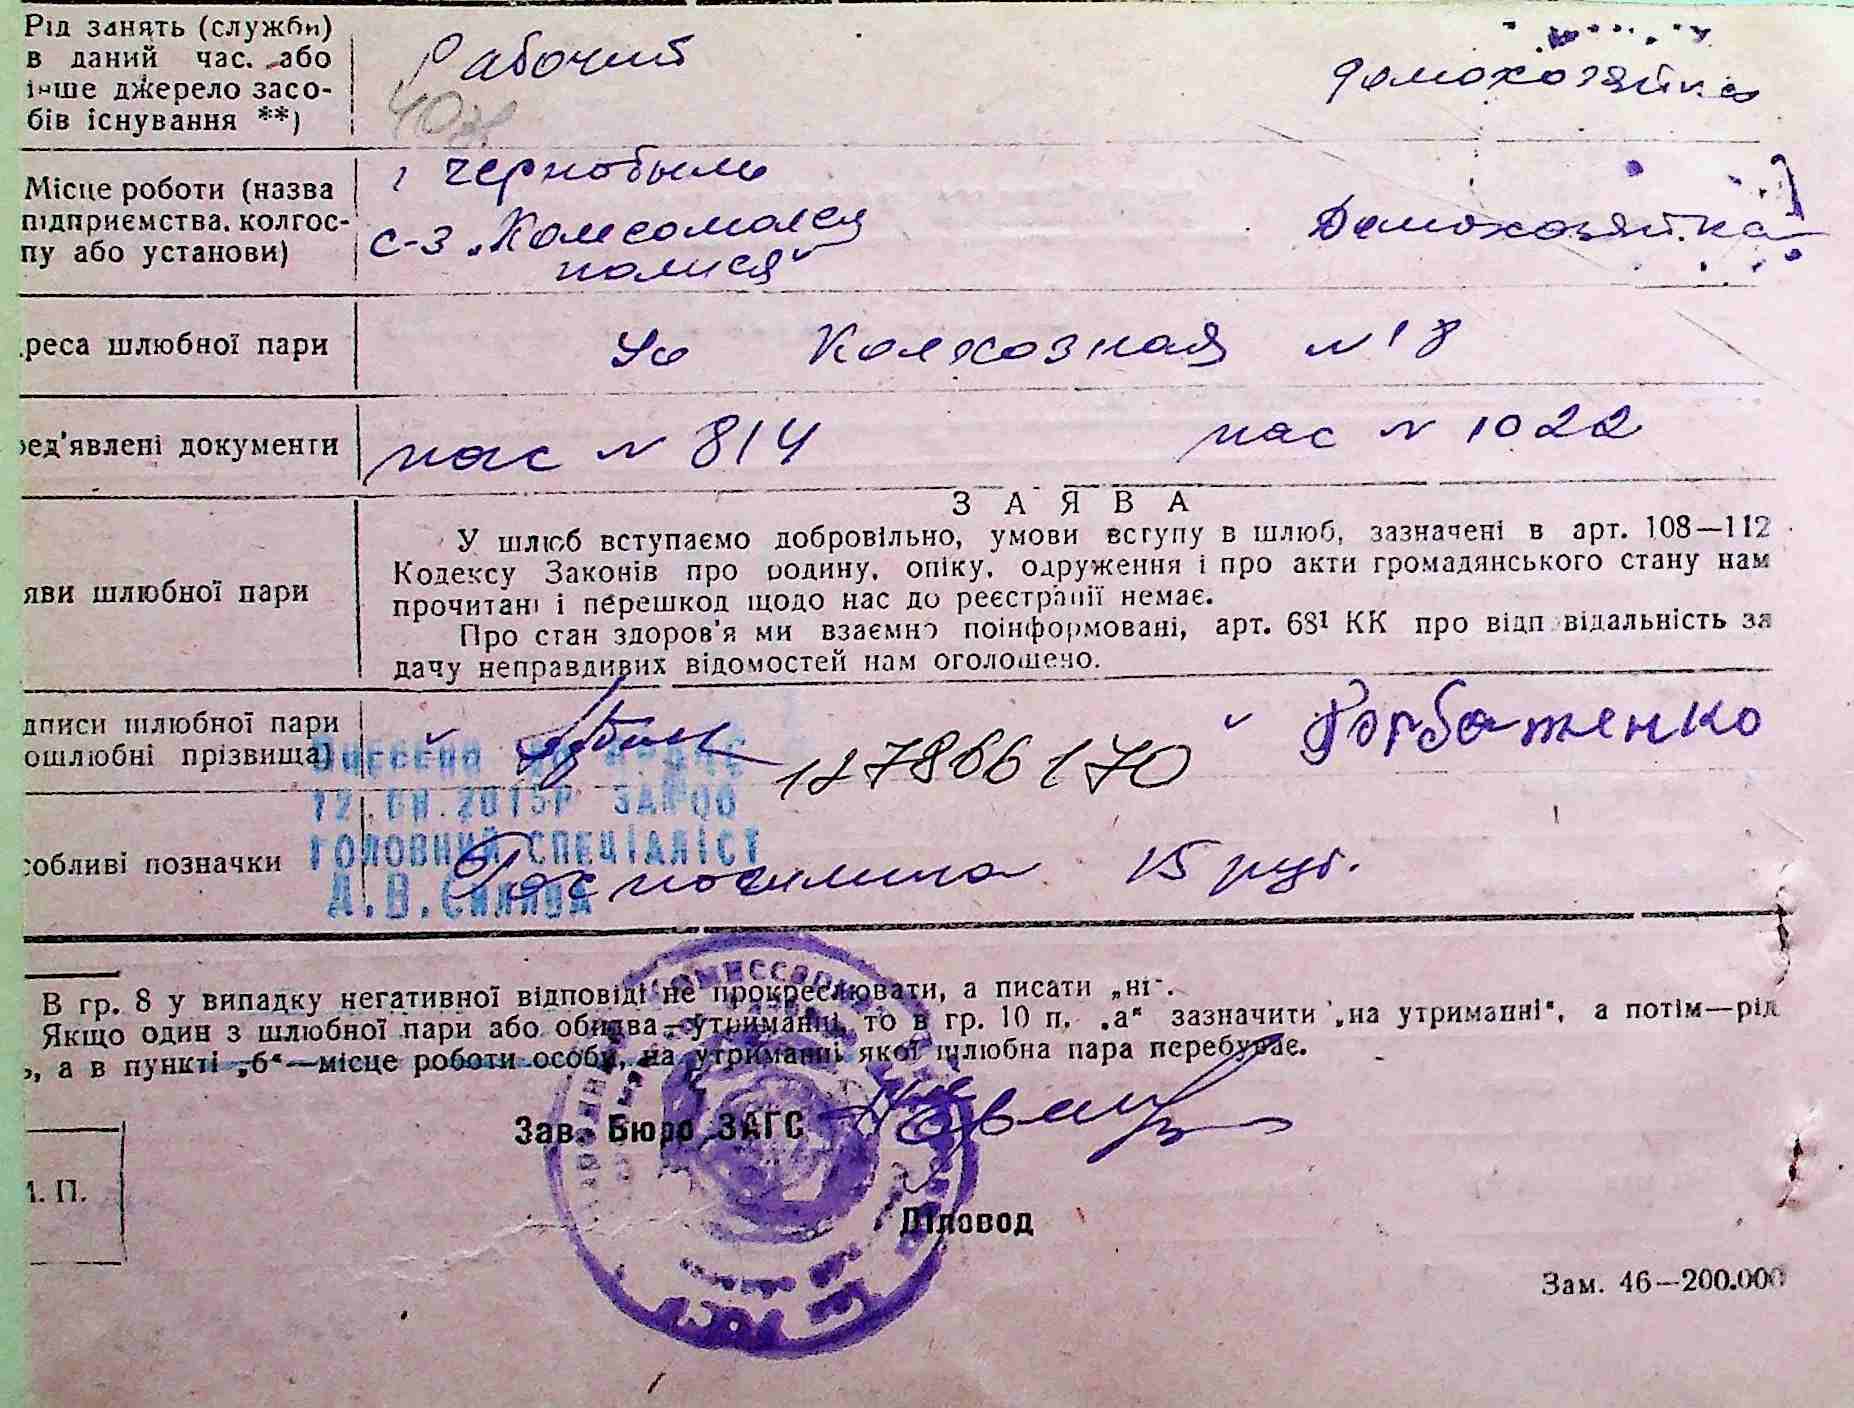 Рід занять (служби)
в даний час. або
інше джерело засо-
бів існування **)
Рабочий
домохозяйка
Місце роботи (назва
підприємства. колгос-
пу або установи)
г Чернобыль
с-з „Комсомолец
полисся“
Домохозяйка
реса шлюбної пари
Колхозная N 18
ред'явлені документи
пас N 814
пас N 1022
яви шлюбної пари
ЗАЯВА
У шлюб вступаємо добровільно, умови вступу в шлюб, зазначені в арт. 108—112
Кодексу Законів про родину, опіку, одруження і про акти громадянського стану нам
прочитані і перешкод щодо нас до реєстрації немає.
Про стан здоров'я ми взаємно поінформовані, арт. 68¹ КК про відповідальність за
дачу неправдивих відомостей нам оголошено.
дписи шлюбної пари
ошлюбні прізвища)
127866170
Горбатенко
Внесено до
12.08.2015р
ГОЛОВНИЙ СПЕЦІАЛІСТ
А.В.
собливі позначки
Госпошлина 15 руб.
В гр. 8 у випадку негативної відповіді не прокреслювати, а писати „ні“.
Якщо один з шлюбної пари або обидва—утриманні, то в гр. 10 п. „а“ зазначити „на утриманні“, а потім—рід
, а в пункті „б“—місце роботи особи, на утриманні якої шлюбна пара перебуває.
Зав. Бюро ЗАГС
М. П.
Діловод
Зам. 46—200.000